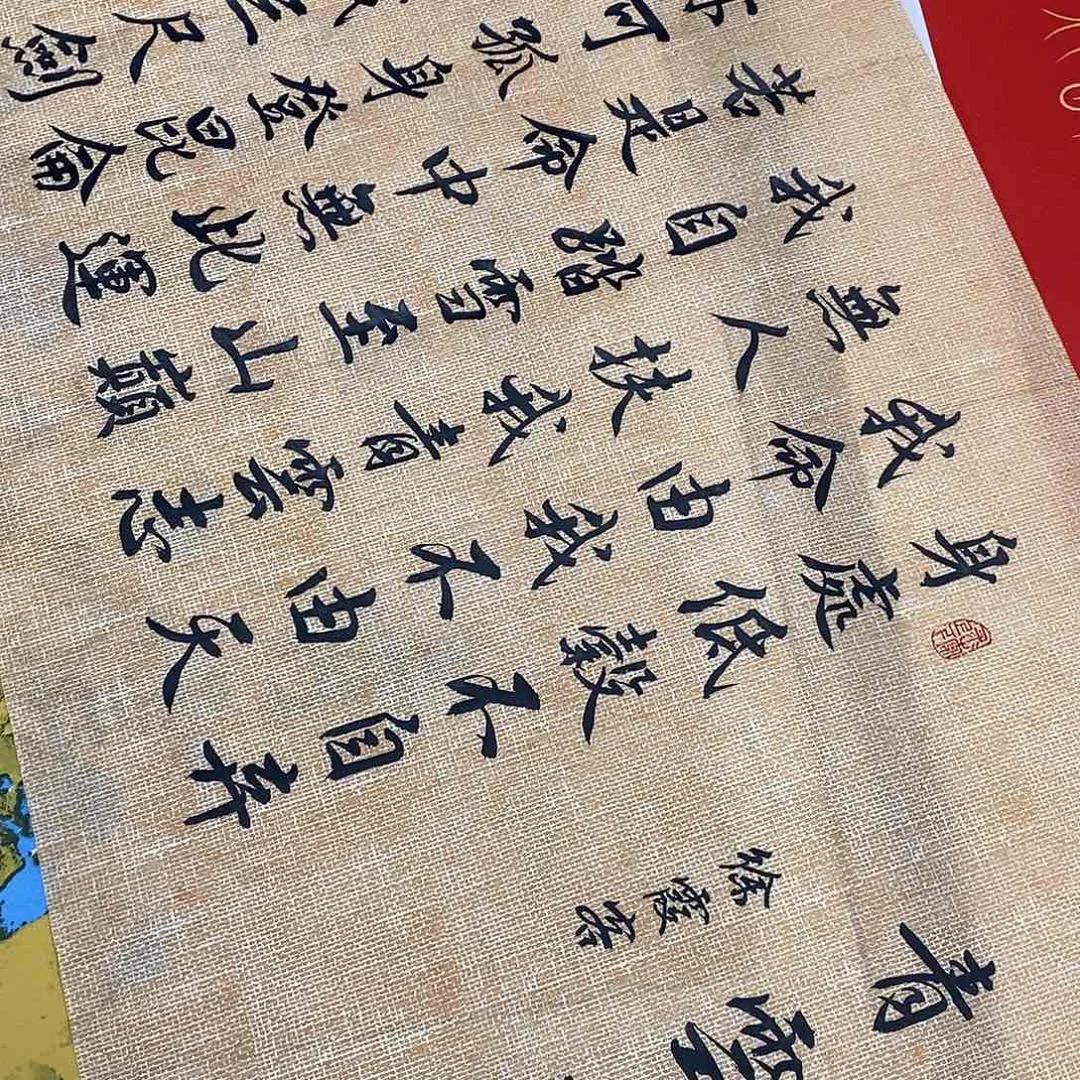 青雲
徐霞客
身處低穀不自弃
我命由我不由天
無人扶我青雲志
我自踏雪至山巔
若是命中無此運
亦可孤身登昆侖
三尺劍